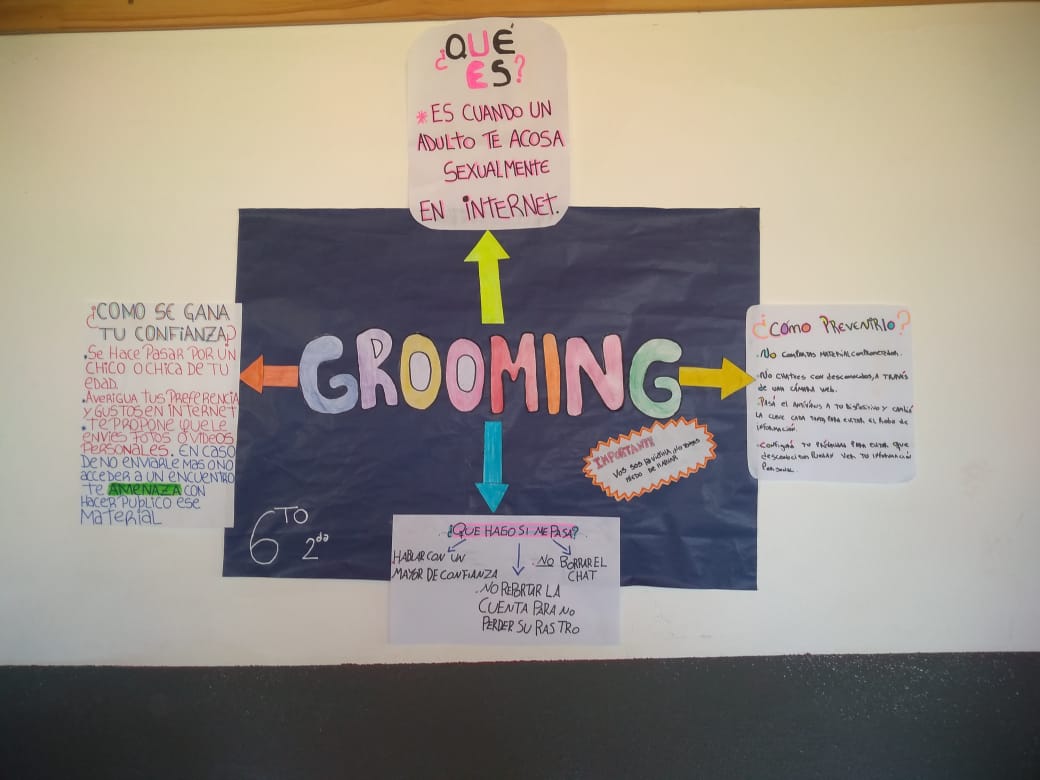 ¿QUÉ
ES?
*ES CUANDO UN
ADULTO TE ACOSA
SEXUALMENTE
EN INTERNET.
¿COMO SE GANA
TU CONFIANZA?
.Se Hace Pasar POR UN
CHICO O CHICA DE TU
EDAD.
.AVERIGUA TUS PREFERENCIA
Y GUSTOS EN INTERNET
• TE PROPONE QUE LE
ENVIES FOTOS O VIDEOS
PERSONALES. EN CASO
DE NO ENVIARLE MAS O NO
ACCEDER A UN ENCUENTRO
TE AMENAZA CON
HACER PUBLICO ESE
MATERIAL
GROOMING
¿CÓMO PREVENIRLO?
.NO COMPARTAS MATERIAL COMPROMETEDOR.
.NO CHATEES CON DESCONOCIDOS, A TRAVÉS
DE UNA CÁMARA WEB.
.PASÁ EL ANTIVIRUS A TU DISPOSITIVO Y CAMBIÁ
LA CLAVE CADA TANTO, PARA EVITAR EL ROBO DE
INFORMACIÓN.
.CONFIGURÁ TU PRIVACIDAD PARA EVITAR QUE
DESCONOCIDOS PUEDAN VER TU INFORMACIÓN
PERSONAL.
IMPORTANTE
VOS SOS LA VICTIMA, NO TENGAS
MIEDO DE HABLAR
6TO 2da
¿QUE HAGO SI ME PASA?
HABLAR CON UN
MAYOR DE CONFIANZA
.NO REPORTAR LA
CUENTA PARA NO
PERDER SU RASTRO
.NO BORRAR EL
CHAT